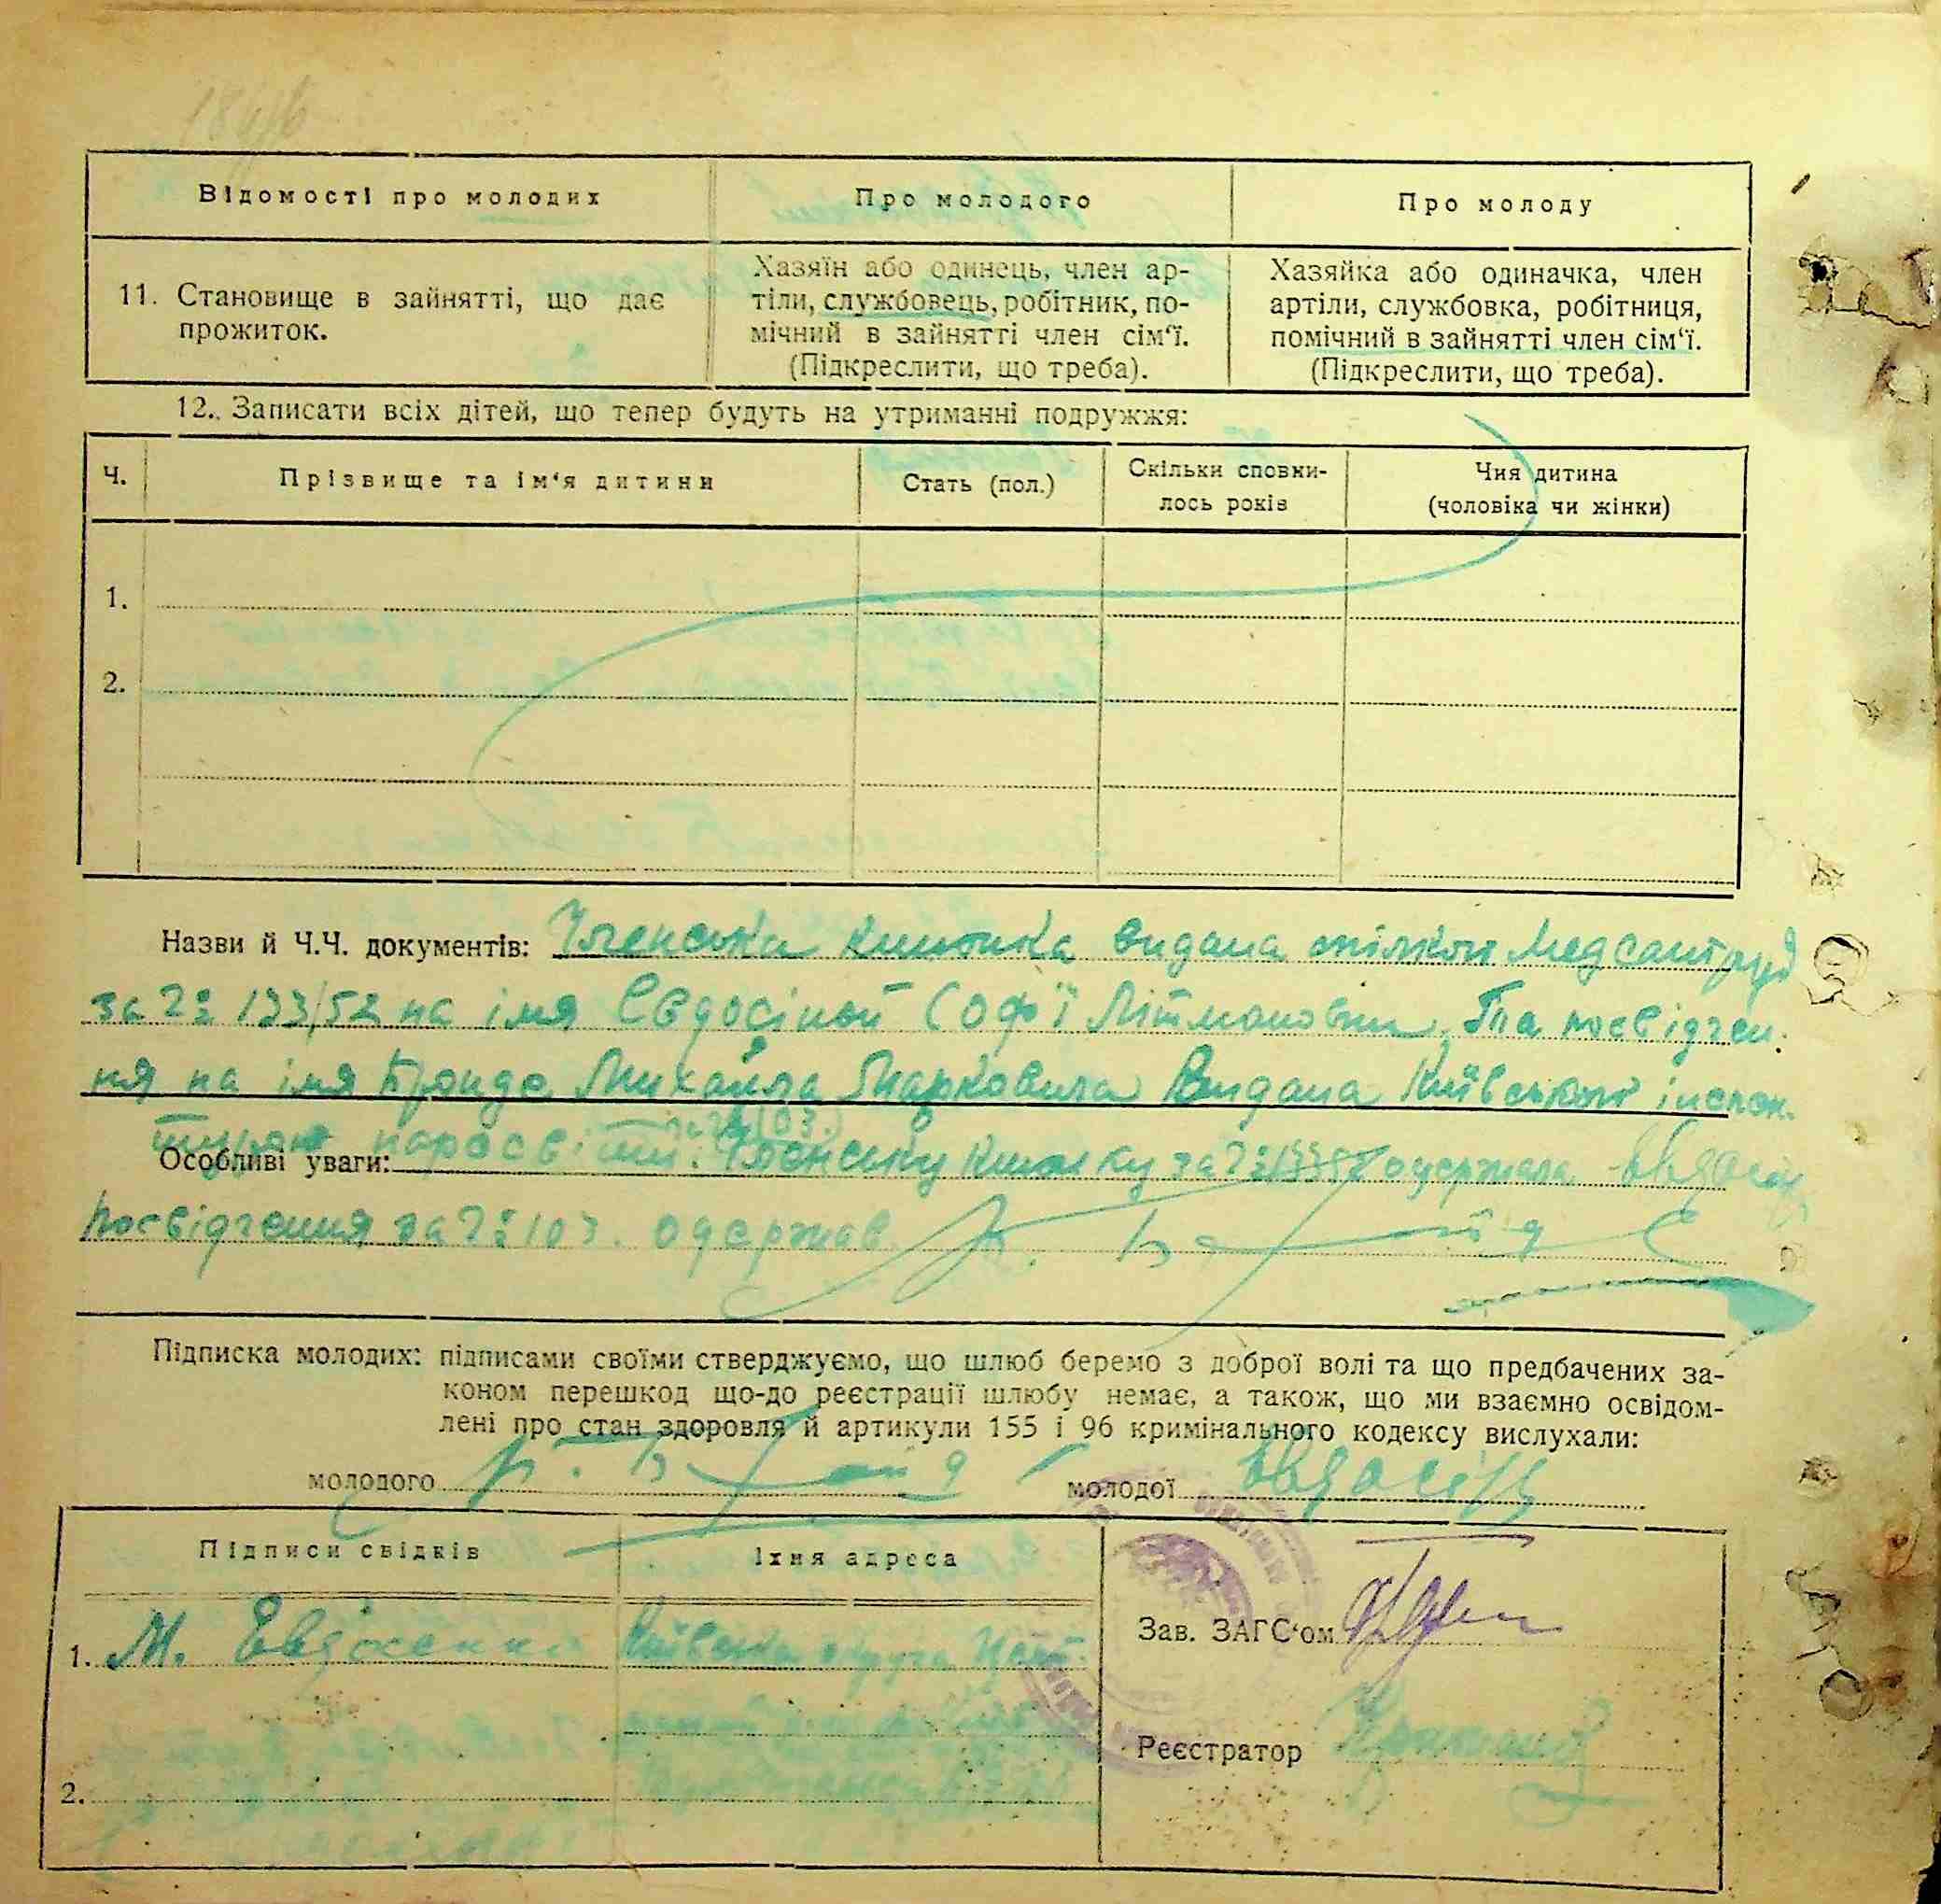 Відомості про молодих
Про молодого
Про молоду
11. Становище в зайнятті, що дає
прожиток.
Хазяїн або одинець, член ар-
тіли, службовець, робітник, по-
мічний в зайнятті член сім‘ї.
(Підкреслити, що треба).
Хазяйка або одиначка, член
артіли, службовка, робітниця,
помічний в зайнятті член сім‘ї.
(Підкреслити, що треба).
12. Записати всіх дітей, що тепер будуть на утриманні подружжя:
Ч.
Прізвище та ім‘я дитини
Стать (пол.)
Скільки сповни-
лось років
Чия дитина
(чоловіка чи жінки)
1.
2.
Назви й Ч.Ч. документів: Членська книжка видана спілкою Медсантруд
за № 133/52 на імя Євдосіної Софії Літмановни. Та посвідчен-
ня на імя Михайла Марковича Видана Київською
наросвіти за № 103.
Особливі уваги: Членську книжку за № 13352 одержала
Посвідчення за № 103. одержав
Підписка молодих: підписами своїми стверджуємо, що шлюб беремо з доброї волі та що предбачених за-
коном перешкод що-до реєстрації шлюбу немає, а також, що ми взаємно освідом-
лені про стан здоровля й артикули 155 і 96 кримінального кодексу вислухали:
молодого
молодої
Підписи свідків
Їхня адреса
1. М.
Київська округа
2.
Зав. ЗАГС‘ом
Реєстратор